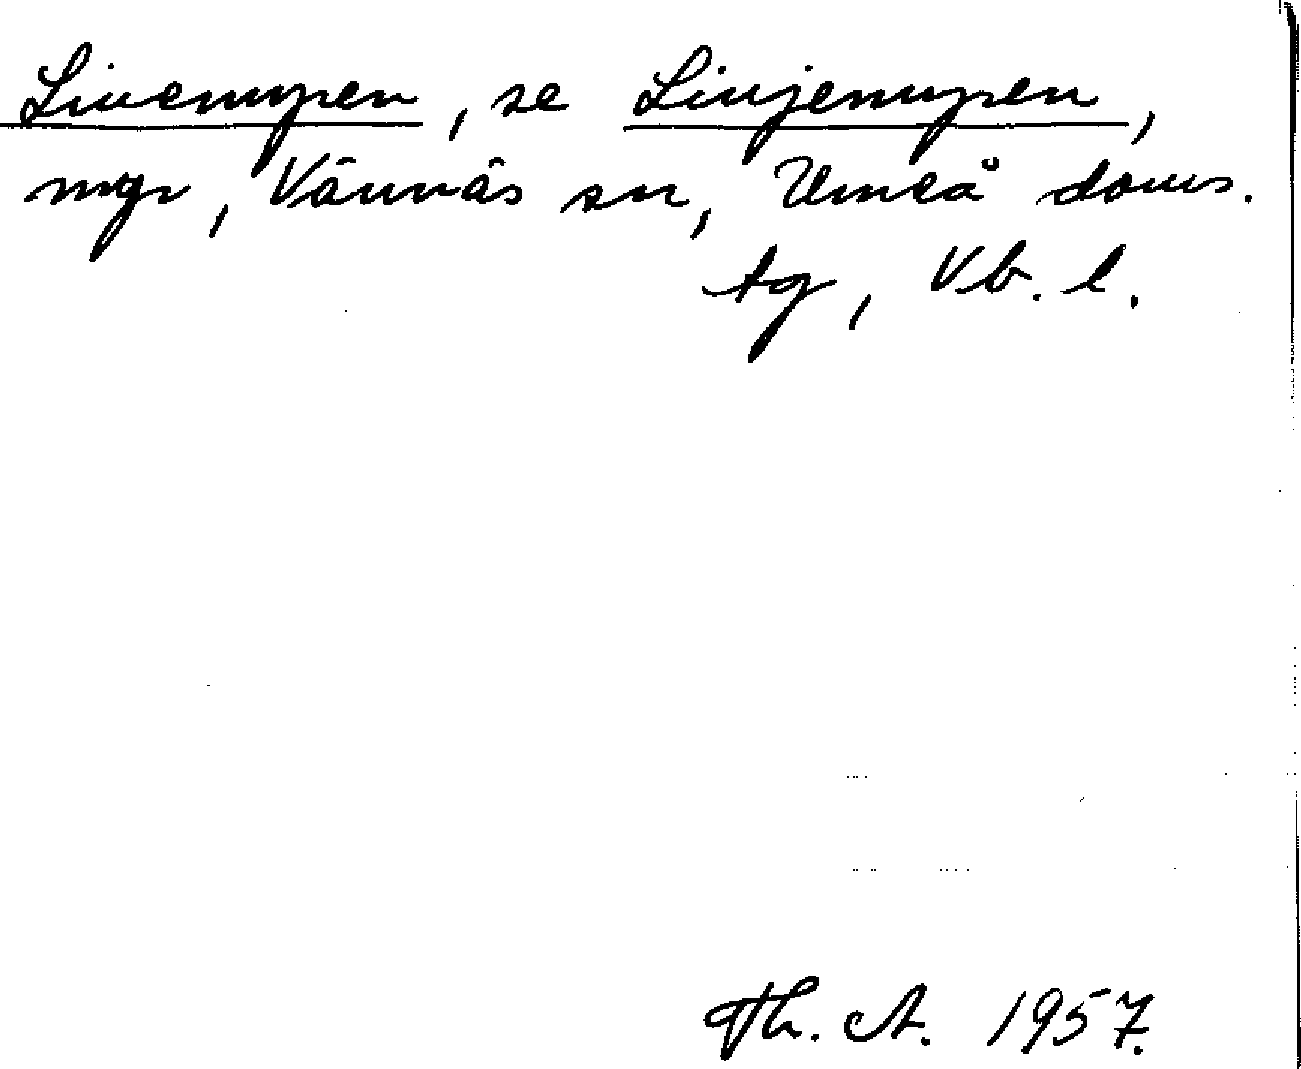 Livemyren, se Linjemyren,
myr, Vännäs sn, Umeå doms.
tg, Vb. l.
Th. A. 1957.